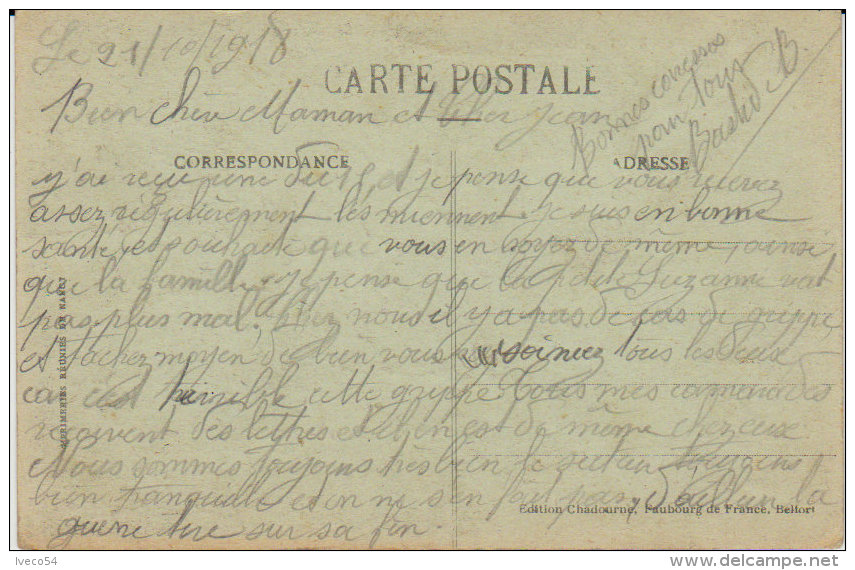 Le 21/10/1918
CARTE POSTALE
Bien chère Maman et Cher Jean
Bonnes caresses
pour tous
B.
CORRESPONDANCE
ADRESSE
j'ai reçu une du 18 et je pense que vous recevez
assez régulièrement les miennent je suis en bonne
santé et souhaite que vous en soyez de même ainsi
que la famille. je pense que la petite Suzanne vat
pas plus mal. Chez nous il y a pas de cas de grippe
et tachez moyen de bien vous soignez tous les deux
car c'est terrible cette grippe tous mes camarades
reçoivent des lettres et il en est de même chez eux
Nous sommes toujours très bien le secteur toujours
bien tranquille et on ne s'en fait pas, d'ailleur la
guerre tire sur sa fin.
IMPRIMERIES RÉUNIES DE NANCY
Edition Chadourne, Faubourg de France, Belfort
Iveco54
www.delcampe.net